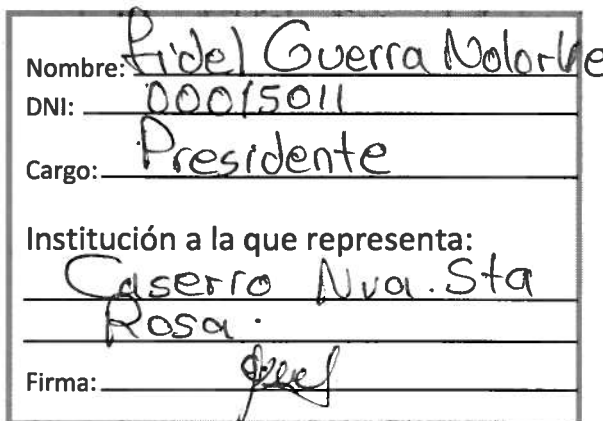 Nombre: Fidel Guerra Nolorve
DNI: 00015011
Cargo: Presidente
Institución a la que representa:
Caserro Nva. Sta
Rosa.
Firma: